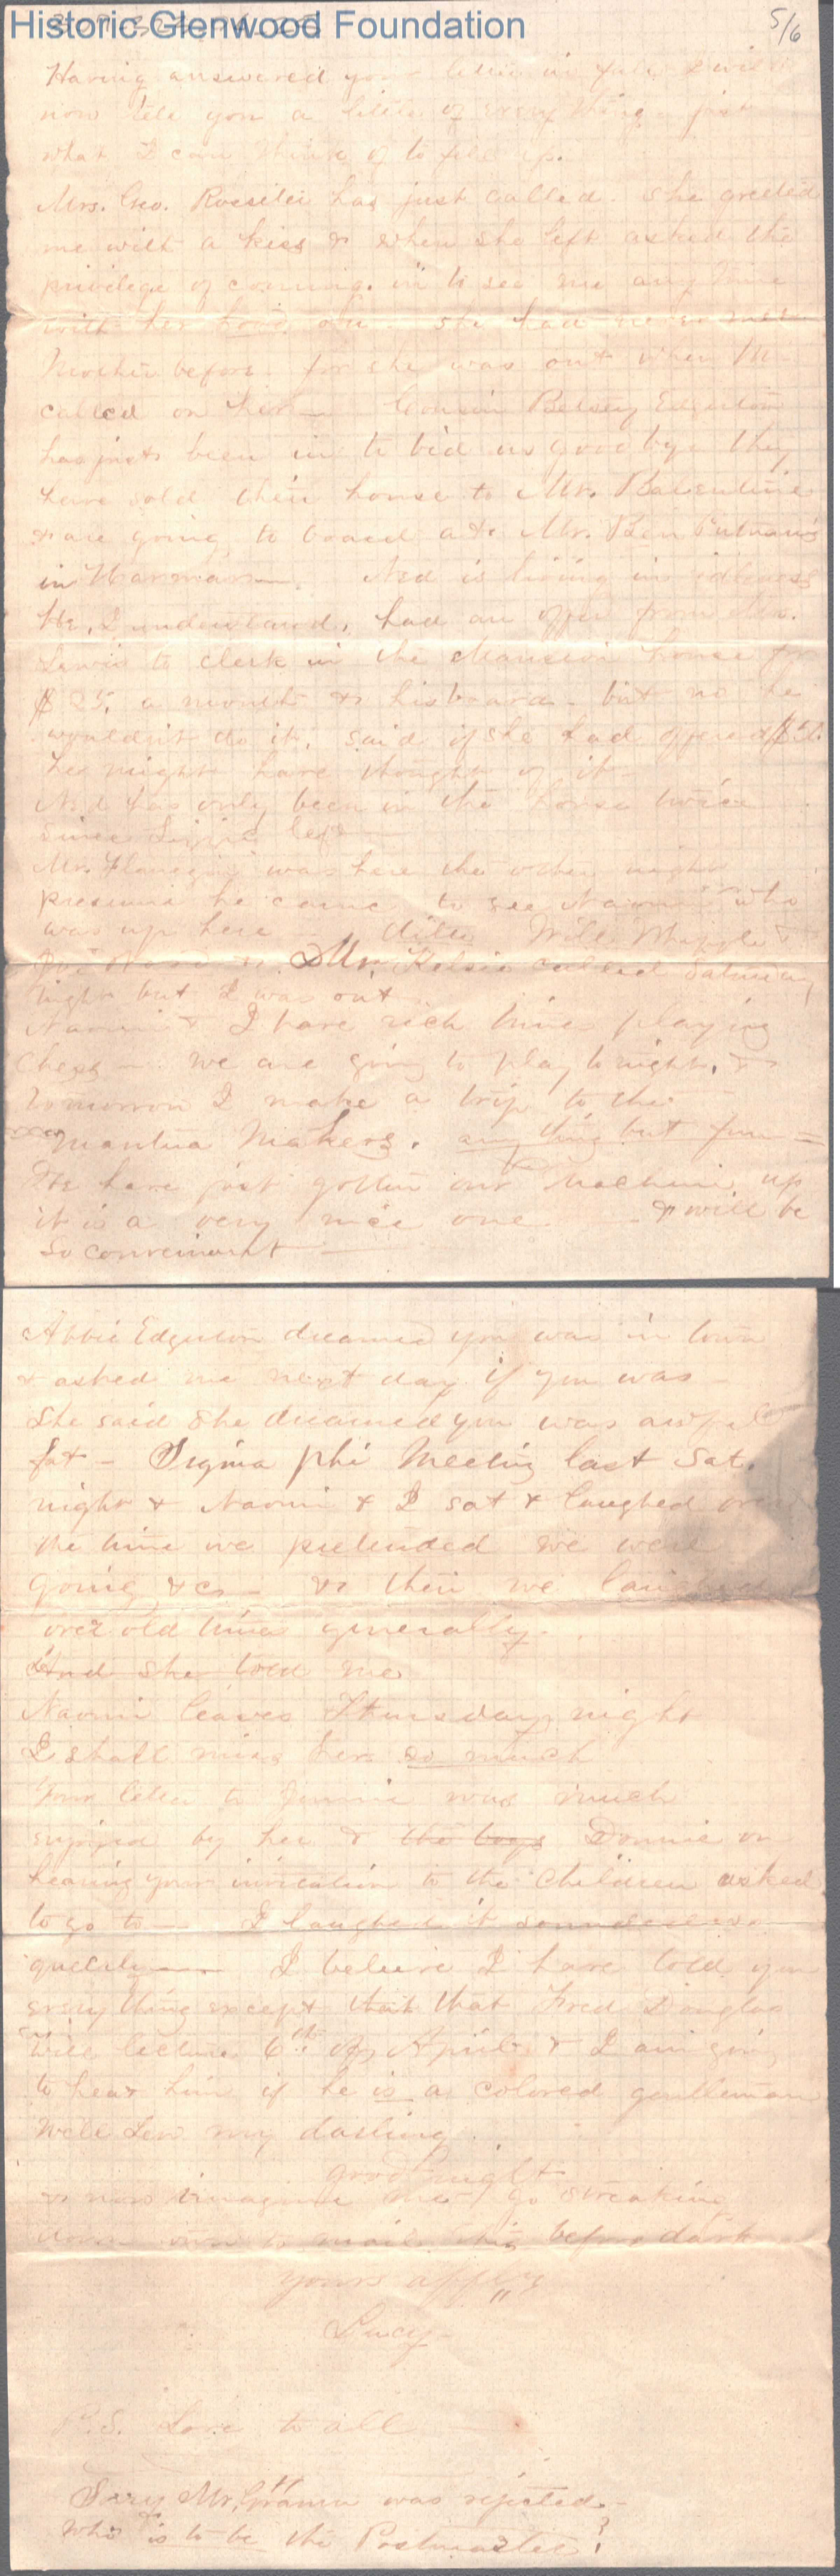 Historic Glenwood Foundation
5/6
Having answered your letter in full I will
now tell you a little of every thing just
what I can think of to fill up.
Mrs. Geo. has just called. She greeted
me with a kiss & when she left asked the
privilege of coming in to see me any time
with her hood on. She had never met
Mother before for she was out when M
called on her — Cousin Betsey Edgerton
has just been in to bid us good bye they
have sold their house to Mr. Balentine
& are going to board at Mr. Ben Putnam's
in Harmar — Ned is living in idleness
He, I understand, had an offer from Mrs.
Lewis to clerk in the Mansion House for
$25. a month & his board — but no he
wouldn't do it, said if she had offered $50.
he might have thought of it —
Ned has only been in the house twice
since Lizzie left —
Mr. Flanegin was here the other night
presume he came to see Naomi who
was up here — Will Whipple &
& Mr. Kelsie called Saturday
night but I was out
Naomi & I have rich times playing
Chess — we are going to play to night, &
tomorrow I make a trip to the
Mantua Makers. any thing but fun =
We have just gotten our Machine up
it is a very nice one — & will be
so convenient —
Abbie Edgerton dreamed you was in town
& asked me next day if you was —
She said she dreamed you was awful
fat — Sigma phi Meeting last Sat.
night & Naomi & I sat & laughed over
the time we pretended we were
going &c — & then we laughed
over old times generally.
And she told me
Naomi leaves Thursday night
I shall miss her so much
Your letter to Jennie was much
enjoyed by her & the boys Donnie on
hearing your invitation to the children asked
to go to — I laughed it sounded so
queerly — I believe I have told you
every thing except that that Fred Douglas
will lecture 6th of April & I am going
to hear him if he is a colored gentleman
Well Lew my darling
good night
& now imagine me go streaking
down town to mail this before dark
yours affly
Lucy —
P.S. Love to all —
Sary Mr. was rejected —
Who is to be the Postmaster?